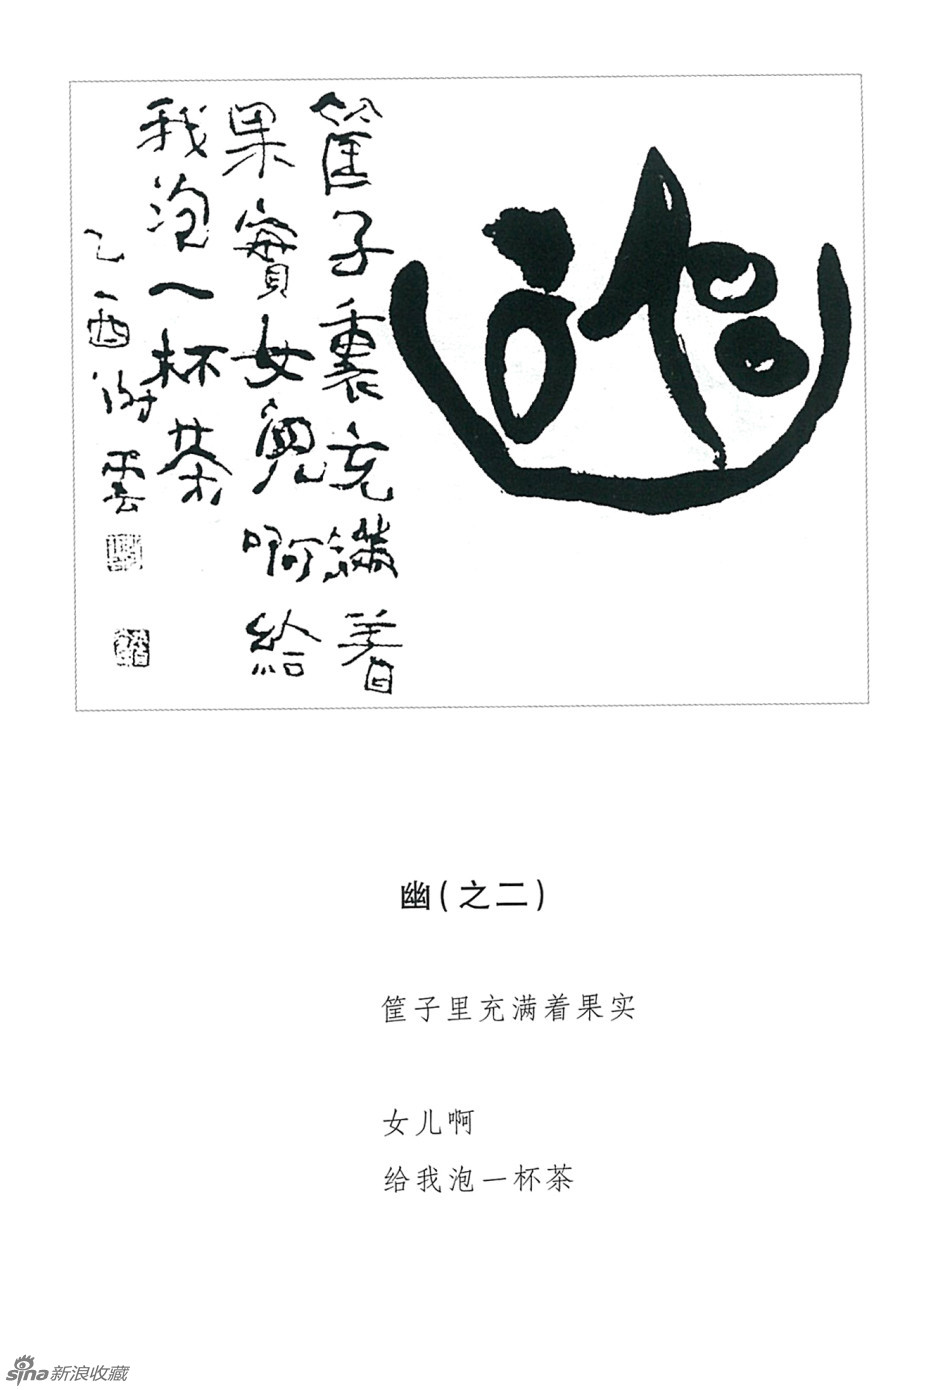 筐子裏充滿着
果實女兒啊給
我泡一杯茶
乙酉謝雲
幽(之二)
筐子里充满着果实
女儿啊
给我泡一杯茶
sina新浪收藏